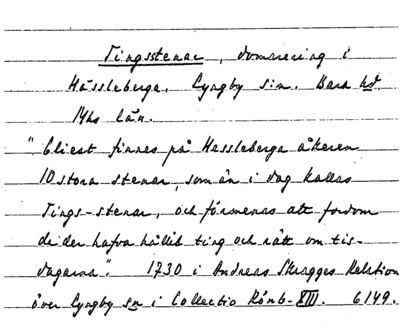 Tingsstenar, domarering i
Hässleberga, Lyngby sn. Bara hd.
Mhs län.
"Eliest finnes på Hessleberga åkeren
10 stora stenar, som än i dag kallas
Tings-stenar, och förmenas att fordom
de der hafva hållit ting och rätt om tis-
dagarna." 1730 i Andreas Skragges Relation
över Lyngby sn i Collectio Rönb. XIII. 6149.